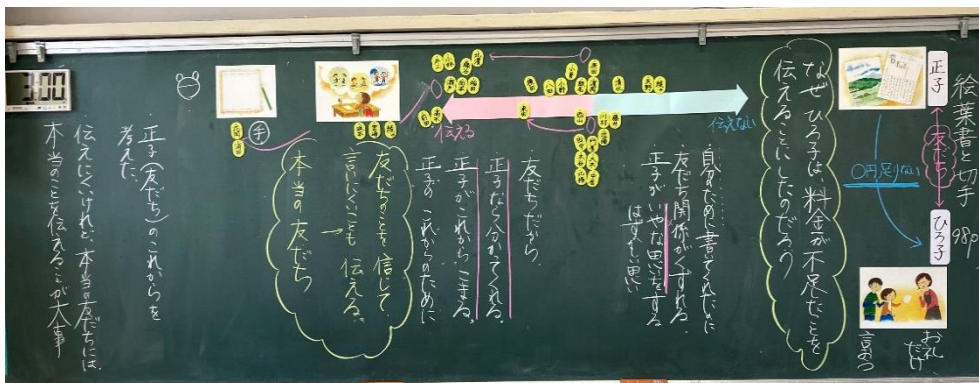 絵葉書と切手
98p
正子
友だち
ひろ子
○円足りない
お礼
だけ
言おう
なぜひろ子は、料金が不足したことを
伝えることにしたのだろう
伝えない
伝える
自分のために書いてくれたのに
友だち関係がくずれる。
正子がいやな思いをする
はずかしい思い
友だちだから、
正子なら分かってくれる。
正子がこれからこまる。
正子の これからのために
友だちのことを信じて、
言いにくいことも 伝える。
本当の友だち
手
3:00
正子(友だち)のこれからを
考えた。
伝えにくいけれど、本当の友だちには、
本当のことを伝えることが大事